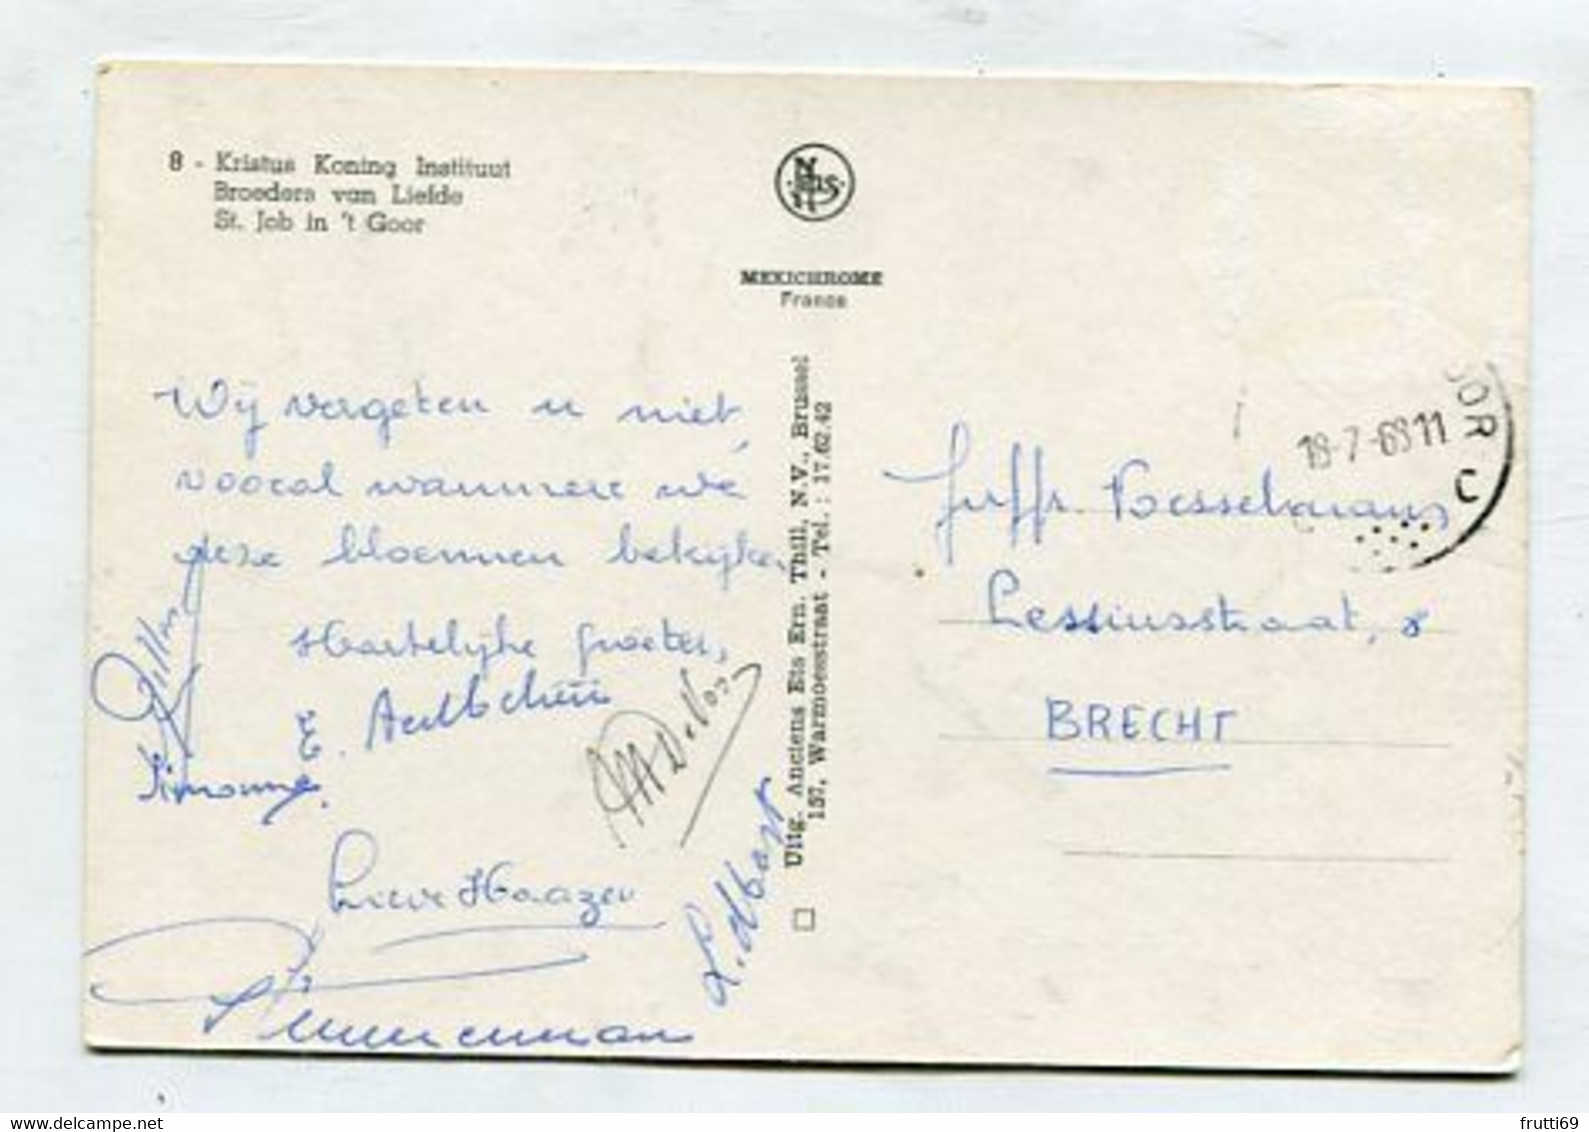 8 - Kristus Koning Instituut
Broeders van Liefde
St. Job in 't Goor
Nels
MEXICHROME
France
Wij vergeten u niet,
vooral wanneer we
deze bloemen bekijken.
Hartelijke groeten,
E.
Simonne.
M De Vos
Lieve Haazen
Zimmerman
Uitg. Anciens Ets Ern. Thill, N.V., Brussel
157, Warmoesstraat - Tel. : 17.62.42
OOR
18-7-68 11
Juffr. Vesselmans
Lessiusstraat, 8
BRECHT
delcampe.net
frutti69